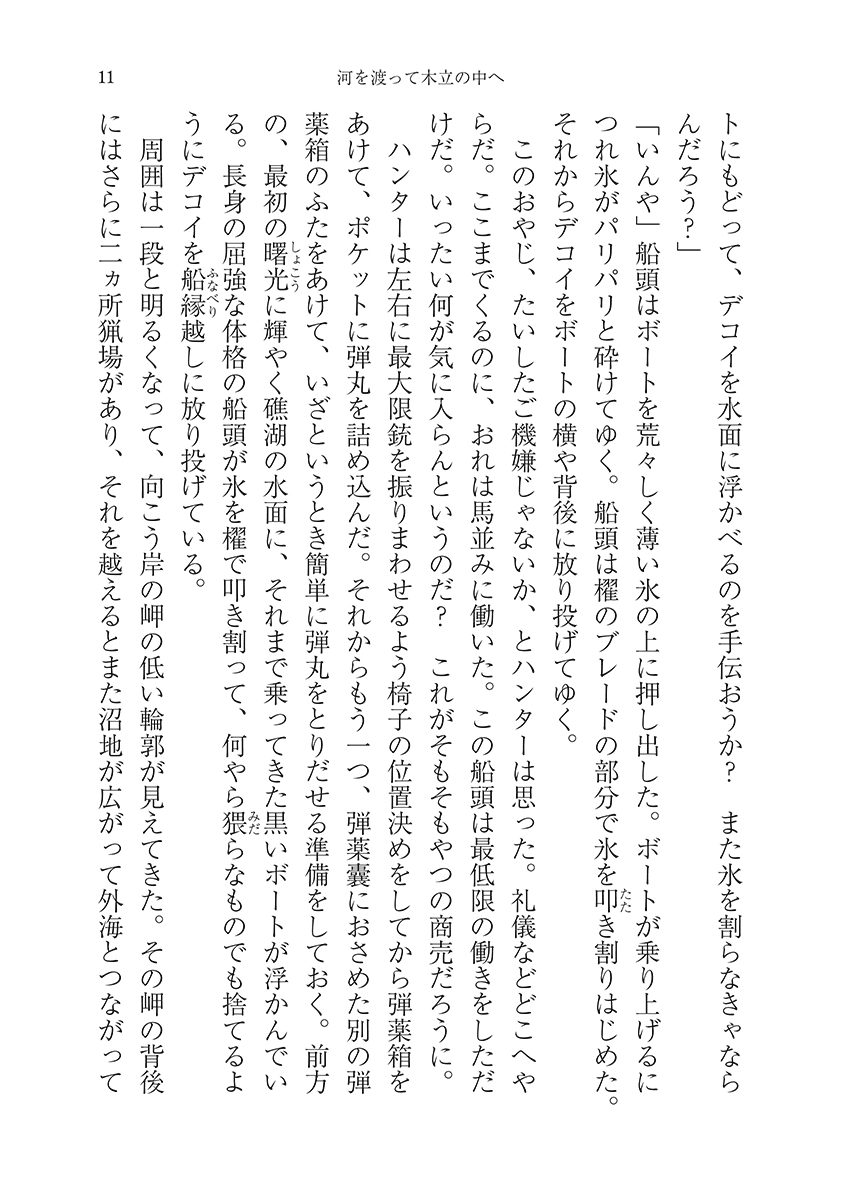 11
河を渡って木立の中へ
トにもどって、デコイを水面に浮かべるのを手伝おうか？　また氷を割らなきゃなら
んだろう？」
「いんや」船頭はボートを荒々しく薄い氷の上に押し出した。ボートが乗り上げるに
つれ氷がパリパリと砕けてゆく。船頭は櫂のブレードの部分で氷を叩き割りはじめた。
たた
それからデコイをボートの横や背後に放り投げてゆく。
このおやじ、たいしたご機嫌じゃないか、とハンターは思った。礼儀などどこへや
らだ。ここまでくるのに、おれは馬並みに働いた。この船頭は最低限の働きをしただ
けだ。いったい何が気に入らんというのだ？　これがそもそもやつの商売だろうに。
ハンターは左右に最大限銃を振りまわせるよう椅子の位置決めをしてから弾薬箱を
あけて、ポケットに弾丸を詰め込んだ。それからもう一つ、弾薬嚢におさめた別の弾
薬箱のふたをあけて、いざというとき簡単に弾丸をとりだせる準備をしておく。前方
の、最初の曙光に輝やく礁湖の水面に、それまで乗ってきた黒いボートが浮かんでい
しょこう
る。長身の屈強な体格の船頭が氷を櫂で叩き割って、何やら猥らなものでも捨てるよ
みだ
うにデコイを船縁越しに放り投げている。
ふなべり
周囲は一段と明るくなって、向こう岸の岬の低い輪郭が見えてきた。その岬の背後
にはさらに二ヵ所猟場があり、それを越えるとまた沼地が広がって外海とつながって